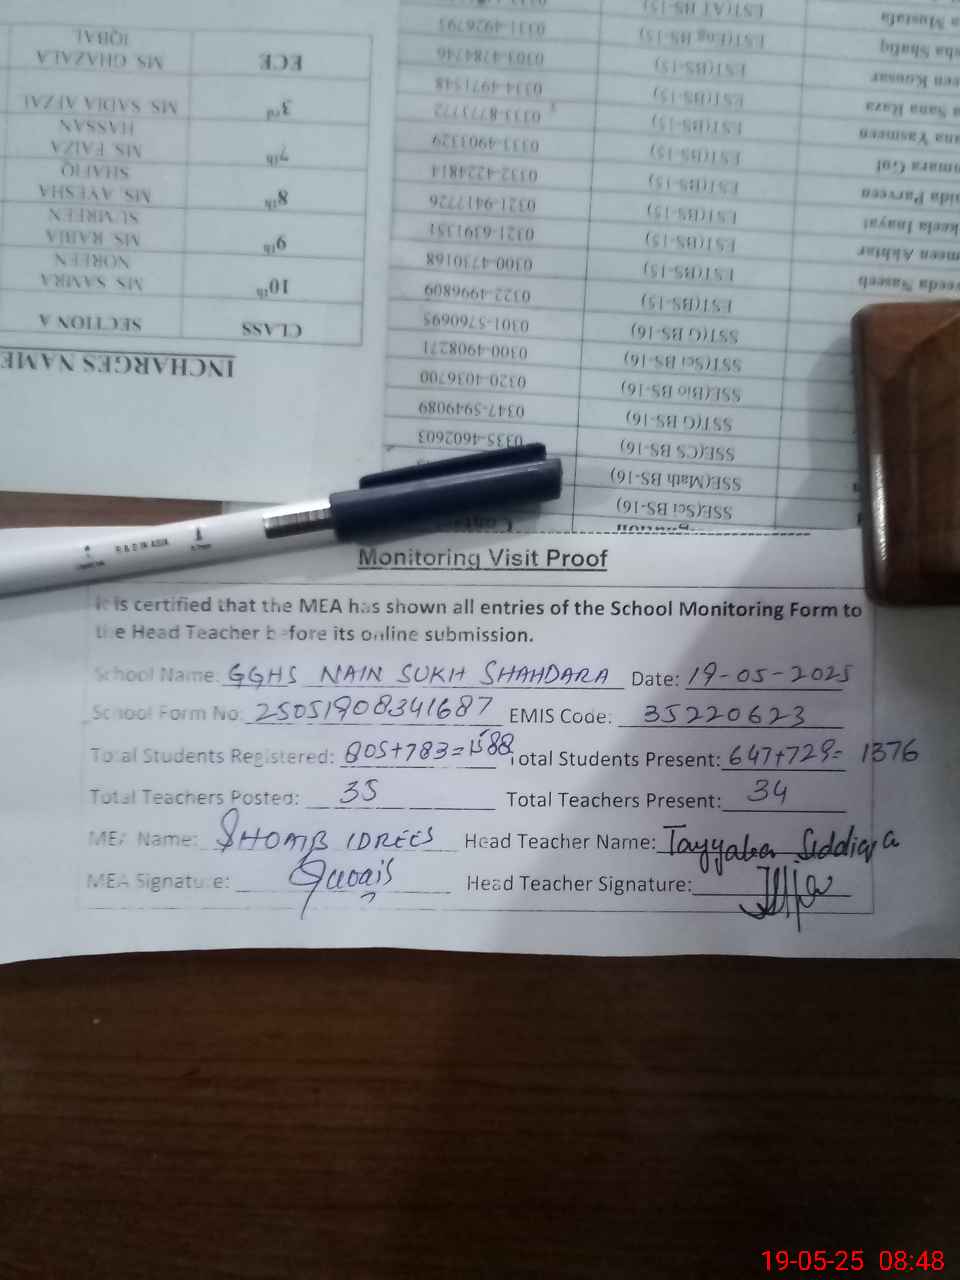 Mustafa
EST(AT BS-15)
0331-4926795
Shafiq
EST(Eng BS-15)
0303-4784746
Kousar
EST(BS-15)
0334-4971548
Sana Raza
EST(BS-15)
0333-8773772
Yasmeen
EST(BS-15)
0333-4903329
Gul
EST(BS-15)
0332-4224814
Parveen
EST(BS-15)
0321-9417726
Inayat
EST(BS-15)
0321-6391351
Akhtar
EST(BS-15)
0300-4730168
Naseeb
EST(BS-15)
0322-4996809
SST(G BS-16)
0301-5760695
SST(Sci BS-16)
0300-4908271
SSE(Bio BS-16)
0320-4036700
SST(G BS-16)
0347-5949089
SSE(CS BS-16)
0335-4602603
SSE(Math BS-16)
SSE(Sci BS-16)
INCHARGES NAME
CLASS SECTION A
10th MS. SAMRA NOREEN
9th MS. RABIA SUMREEN
8th MS. AYESHA SHAFIQ
7th MS. FAIZA HASSAN
3rd MS. SADIA AFZAL
ECE MS. GHAZALA IQBAL
Monitoring Visit Proof
It is certified that the MEA has shown all entries of the School Monitoring Form to
the Head Teacher before its online submission.
School Name: GGHS NAIN SUKH SHAHDARA Date: 19-05-2025
School Form No: 25051908341687 EMIS Code: 35220623
Total Students Registered: 805+783=1588 Total Students Present: 647+729= 1376
Total Teachers Posted: 35 Total Teachers Present: 34
MEA Name: SHOAIB IDREES Head Teacher Name: Tayyaba Siddiqa
MEA Signature: Head Teacher Signature:
19-05-25 08:48